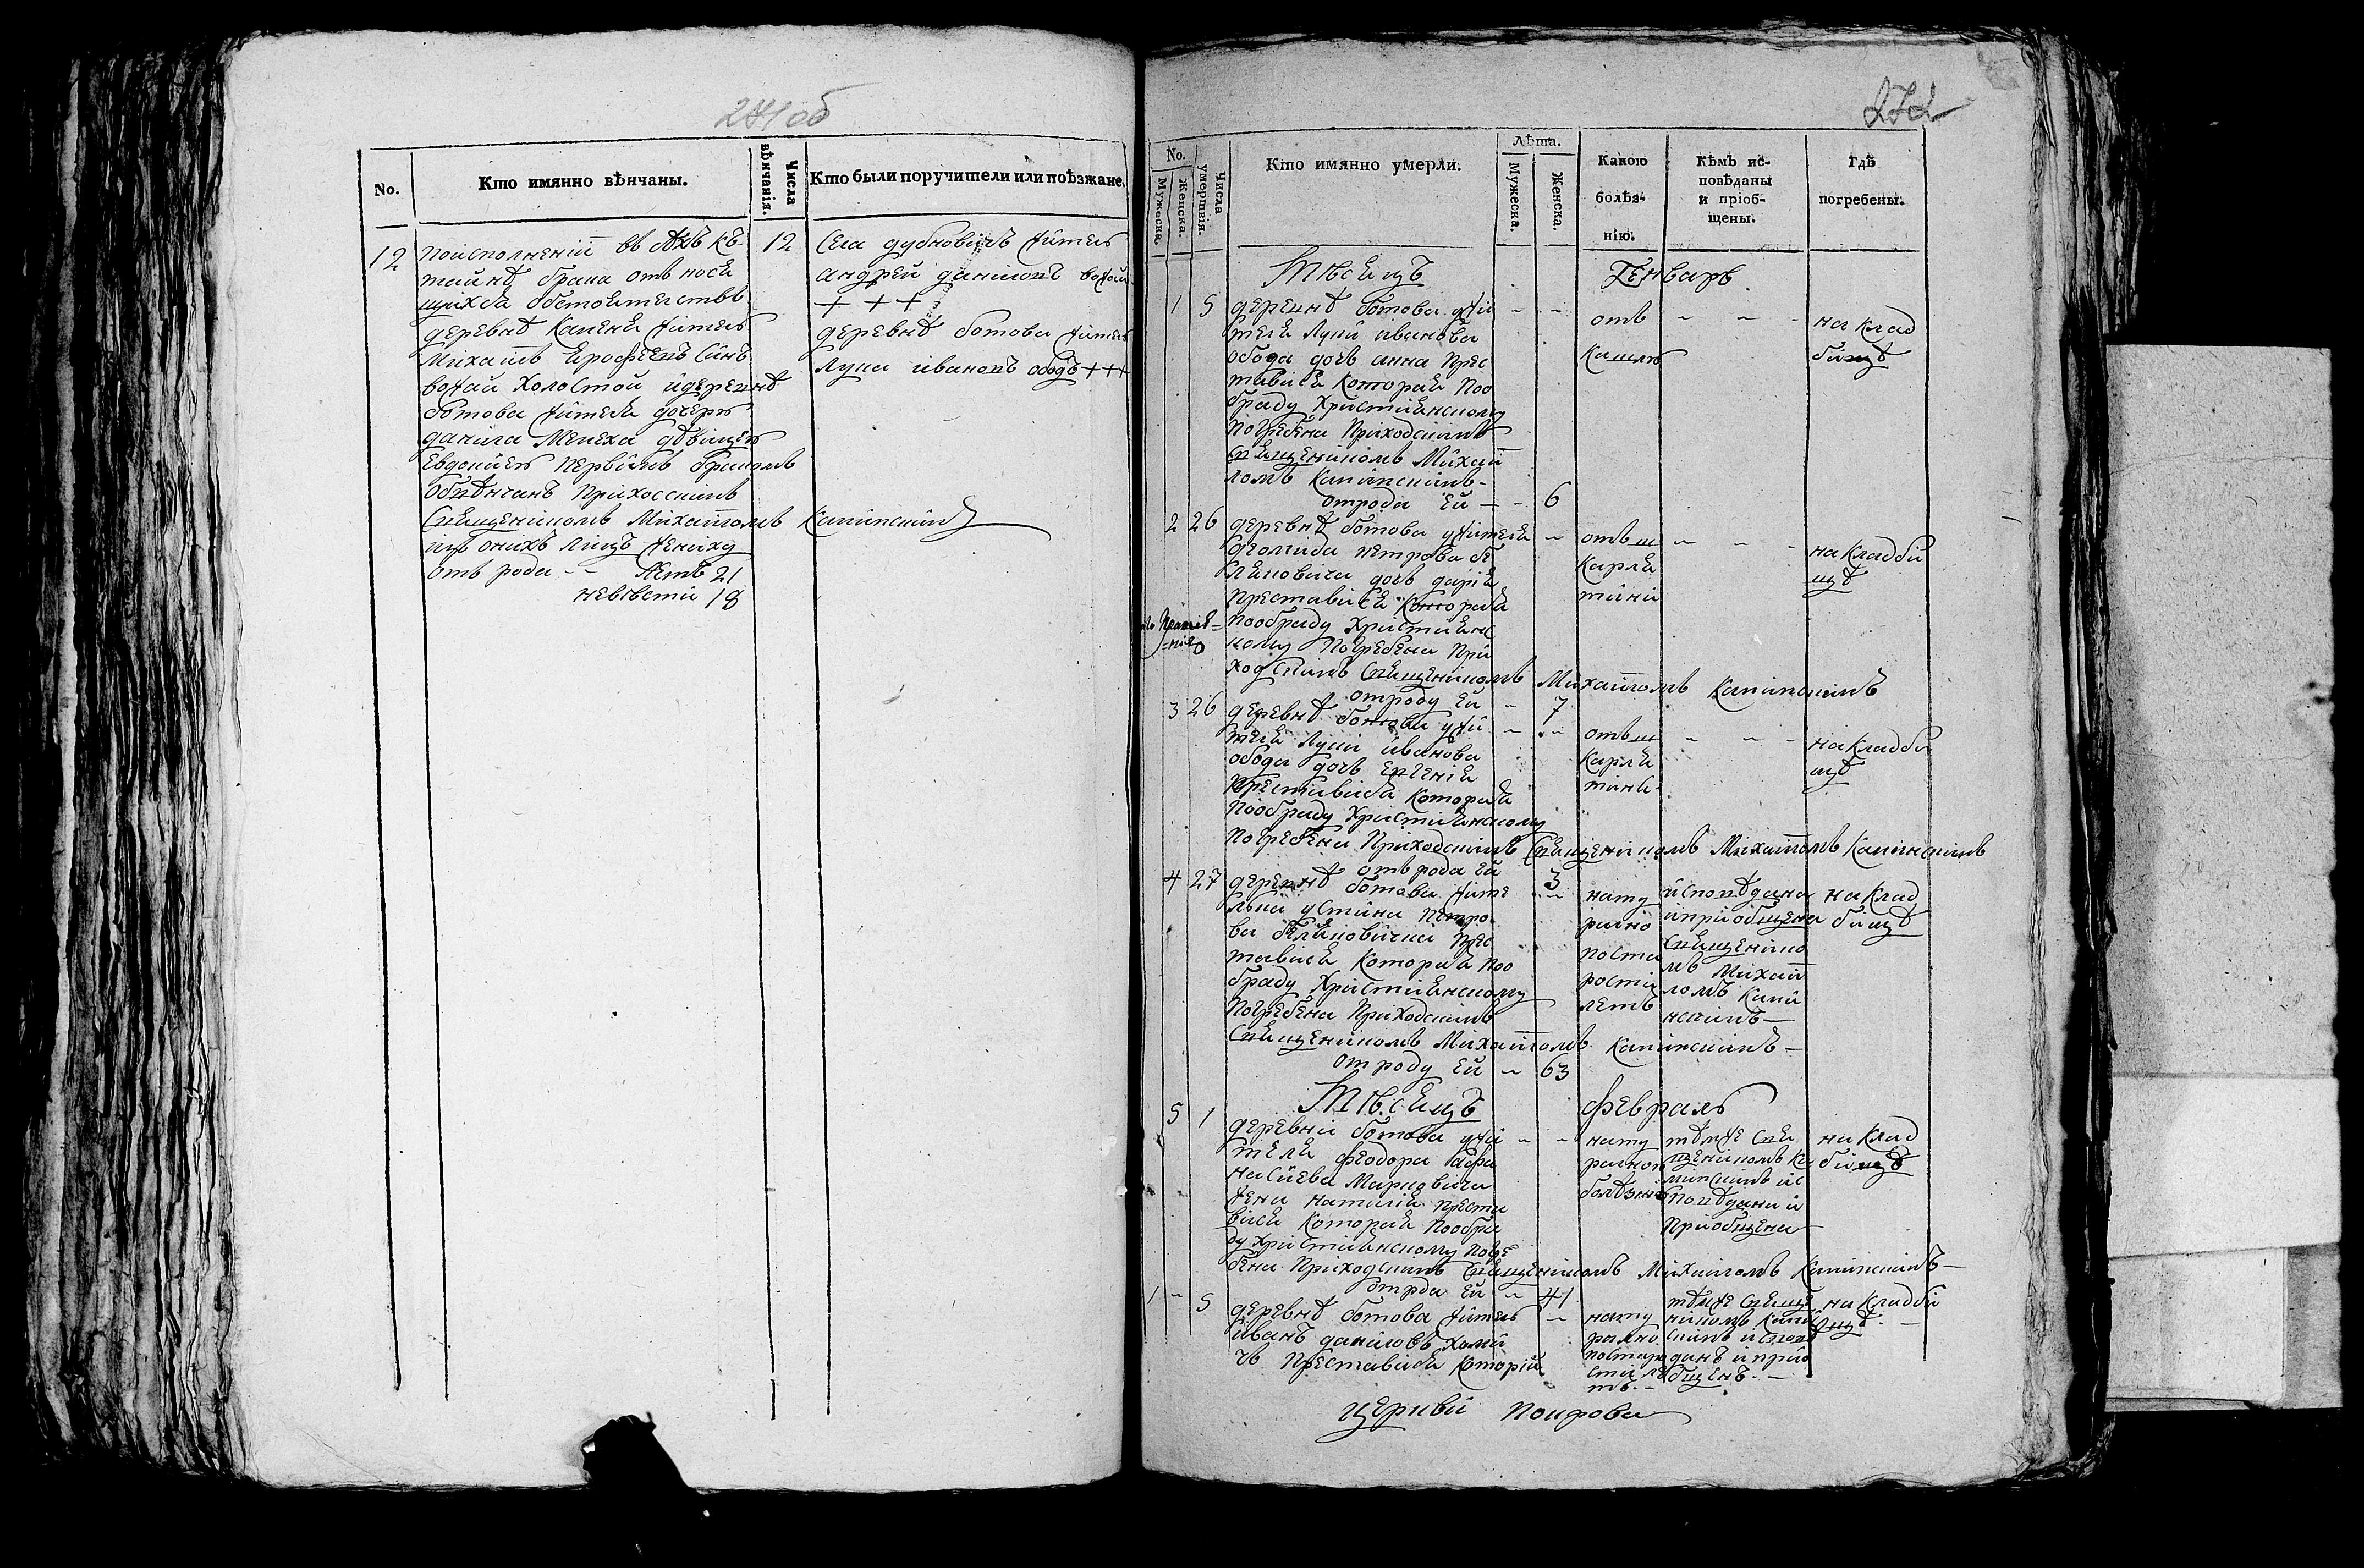 271 об
No.
Кто имянно вѣнчаны.
Числа вѣнчанія.
Кто были поручители или поѣзжане.
12
12
Поисполненіи всѣхъ къ
тайнѣ брака относя
щихся обстоятелствъ
деревнѣ Каменя житель
Михаилъ Ерофѣевъ Синъ
холостой идеревнѣ
ботова жителя дочерь
даніла дѣвицею
Евдокиею первимъ бракомъ
Обвѣнчанъ Приходскимъ
Священіком Михаиломъ
изъ онихъ лицъ жениху
отъ рода -- лѣтъ 21
невѣсти 18
Села дубновичъ житель
андрей данїловъ
+ + +
деревнѣ ботова житель
Лука ивановъ ободъ +++
272
No.
Мужеска.
Женска.
Числа умертвія.
Кто имянно умерли.
Лѣта.
Мужеска.
Женска.
Какою болѣз-
нію.
Кѣмъ ис-
повѣданы
и пріоб-
щены.
Гдѣ
погребены.
Мѣсяцъ Генваръ
1 5
деревнѣ ботова ужи
теля Луки иванова
обода дочь анна прес
тавися Которая Поо
браду Християнскому
погребена Приходскимъ
Священікомъ Михаи
ломъ
отрода Ей - - 6
отъ
Кашлю
на Клад
бищѣ
2 26
деревнѣ ботова ужителя
петрова бе
ляновича дочь дарія
преставися Которая
пообраду Християнс
кому погребена При
ходскимъ Священікомъ Михаиломъ
отроду Ей - 7
отъ ш
Карля
тини
на Кладби
щѣ
3 26
деревнѣ ботова ужи
теля Луки иванова
обода дочь Евгенія
преставися Которая
пообраду Християнскому
погребена Приходскимъ Священікомъ Михаиломъ
отъ рода Ей 3
отъ ш
Карля
тини
на Кладби
щѣ
4 27
деревнѣ ботова жите
лька устина петро
ва беляновичка прес
тавися Которая поо
браду Християнскому
погребена Приходскимъ
Священікомъ Михаиломъ
отроду Ей - 63
нату
рално
поста
рости
летъ
исповѣдана
ипріобщена
Священіко
мъ Михаи
ломъ
на Клад
бищѣ
Мѣсяцъ февраль
5 1
деревни ботова ужи
теля феодора афа
насиева Марковича
жена наталія преста
вися Которая пообра
ду Християнскому погре
бена Приходскимъ Священікомъ Михаиломъ
отрода Ей - 41
нату
ралною
болѣзню
темже свя
щеникомъ Ка
ис
повѣдана и
Пріобщена
на Клад
бищѣ
1 - 5
деревнѣ ботова житель
иванъ даниловъ
преставися Которій
нату
рално
постаро
сти ле
тъ
темже свяще
никомъ
испов
данъ и прио
бщенъ
на Кладби
щѣ
церкви Покрова